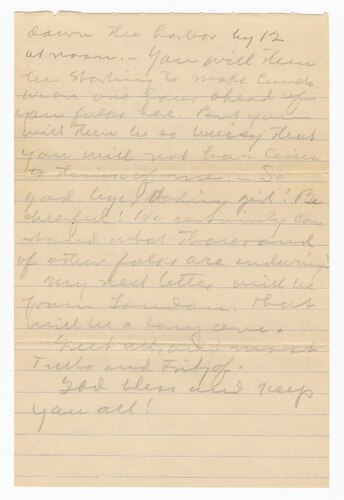 down the harbor by 12
at noon. – You will then
be starting to make
We are one hour ahead of
you folks here. But you
will then be so bussy that
you will not have time
to think of me. – So
good bye, darling girl! Be
cheerful! We certainly can
stand what thousand
of other folks are enduring!
My next letter will be
from London. That
will be a long one.
Greet all and most
and Fritjof.
God bless and keep
you all!